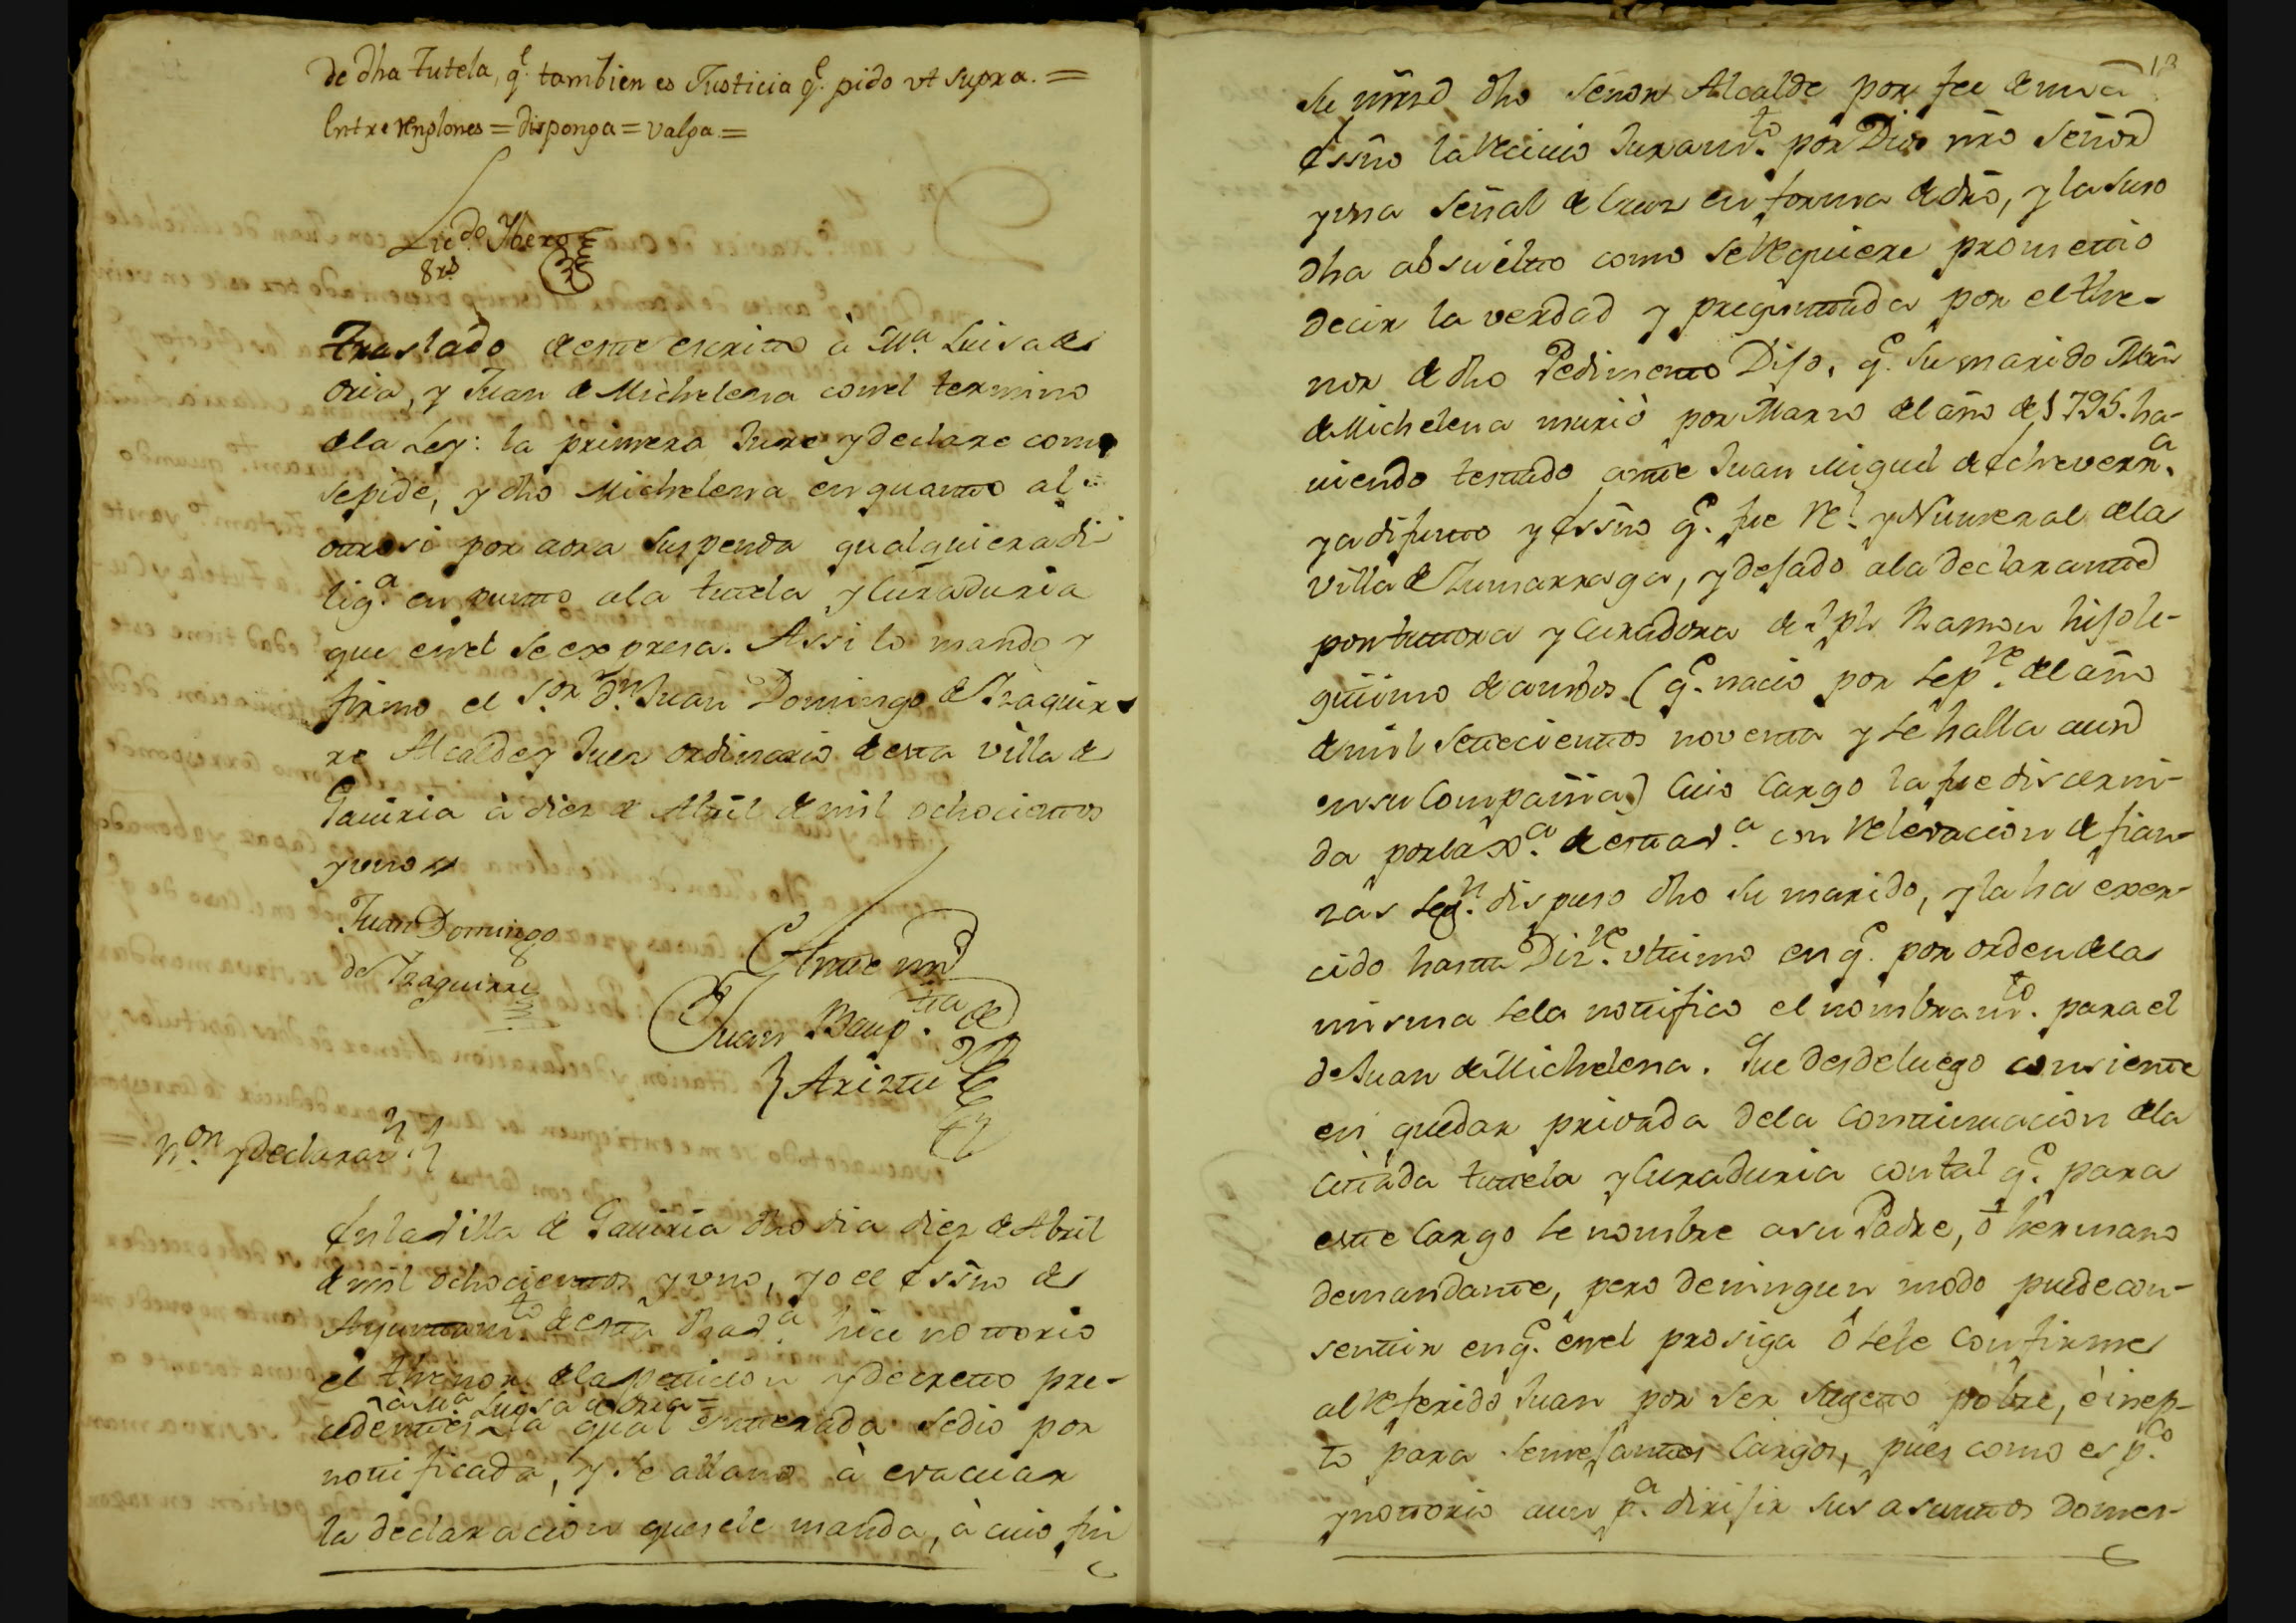 de dha tutela, q.e tambien es Justicia q.e pido vt supra. =
Entre renglones = disponga = valga. =
Liz.do Ybero
8 rs
Traslado de este escrito à M.a Luisa de
Oria, y Juan de Michelena con el termino
de la Ley: la primera Jure y declare como
se pide, y dho Michelena en quanto al
otrosi por aora suspenda qualquiera di-
lig.a en punto a la tutela y Curaduria
que en el se expresa. Assi lo mando y
firmo el S.or D.n Juan Domingo de Yzaguir
re Alcalde y Juez ordinario de esta villa de
Gaviria à diez de Abril de mil ochocientos
y uno
Juan Domingo
de Yzaguirre
Ante mi
Juan Baup.ta de
Ariztu
N.on y declaraz.n
En la Villa de Gaviria dho dia diez de Abril
de mil ochocientos y uno, yo el Essno de
Ayuntam.to de esta hice notorio
el thenor de la peticion y decreto pre-
à M.a Luisa de Oria =
cedentes la qual enterada se dio por
notificada, y se allano à evacuar
la declaracion que se le manda, à cuio fin
13
su mrd dho Señor Alcalde por fee de mi el
Essno la recivio Juram.to por Dios nro Señor
y una Señal de Cruz en forma de dro, y la suso
dha absuelto como se requiere prometio
decir la verdad y preguntada por el the-
nor de dho Pedimento Dijo, q.e su marido Mrn
de Michelena murió por Marzo del año de 1795. ha-
viendo testado ante Juan Miguel de Echeverr.a
ya difunto y Essno q.e fue R.l y Numeral de la
villa de Zumarraga, y dejado a la declarante
por tutora y Curadora de Jph Ramon hijo le-
gitimo de ambos (q.e nacio por Sep.re del año
de mil setecientos noventa y se halla aun
en su Compañia) cuio Cargo la fue discerni-
da por la J.a de esta v.a con relevacion de fian-
zas seg.n dispuso dho su marido, y la ha exer-
cido hasta Diz.re ultimo en q.e por orden de la
misma se la notifico el nombram.to para el
de Juan de Michelena. Que desde luego consiente
en quedar privada de la continuacion de la
citada tutela y Curaduria con tal q.e para
este Cargo se nombre a su Padre, ò hermano
demandante, pero de ningun modo puede con-
sentir en q.e en el prosiga ò se le confirme
al referido Juan por ser sugeto pobre, è inep-
to para semejantes Cargos, pues como es p.co
y notorio aun p.a dirijir sus asuntos domes-